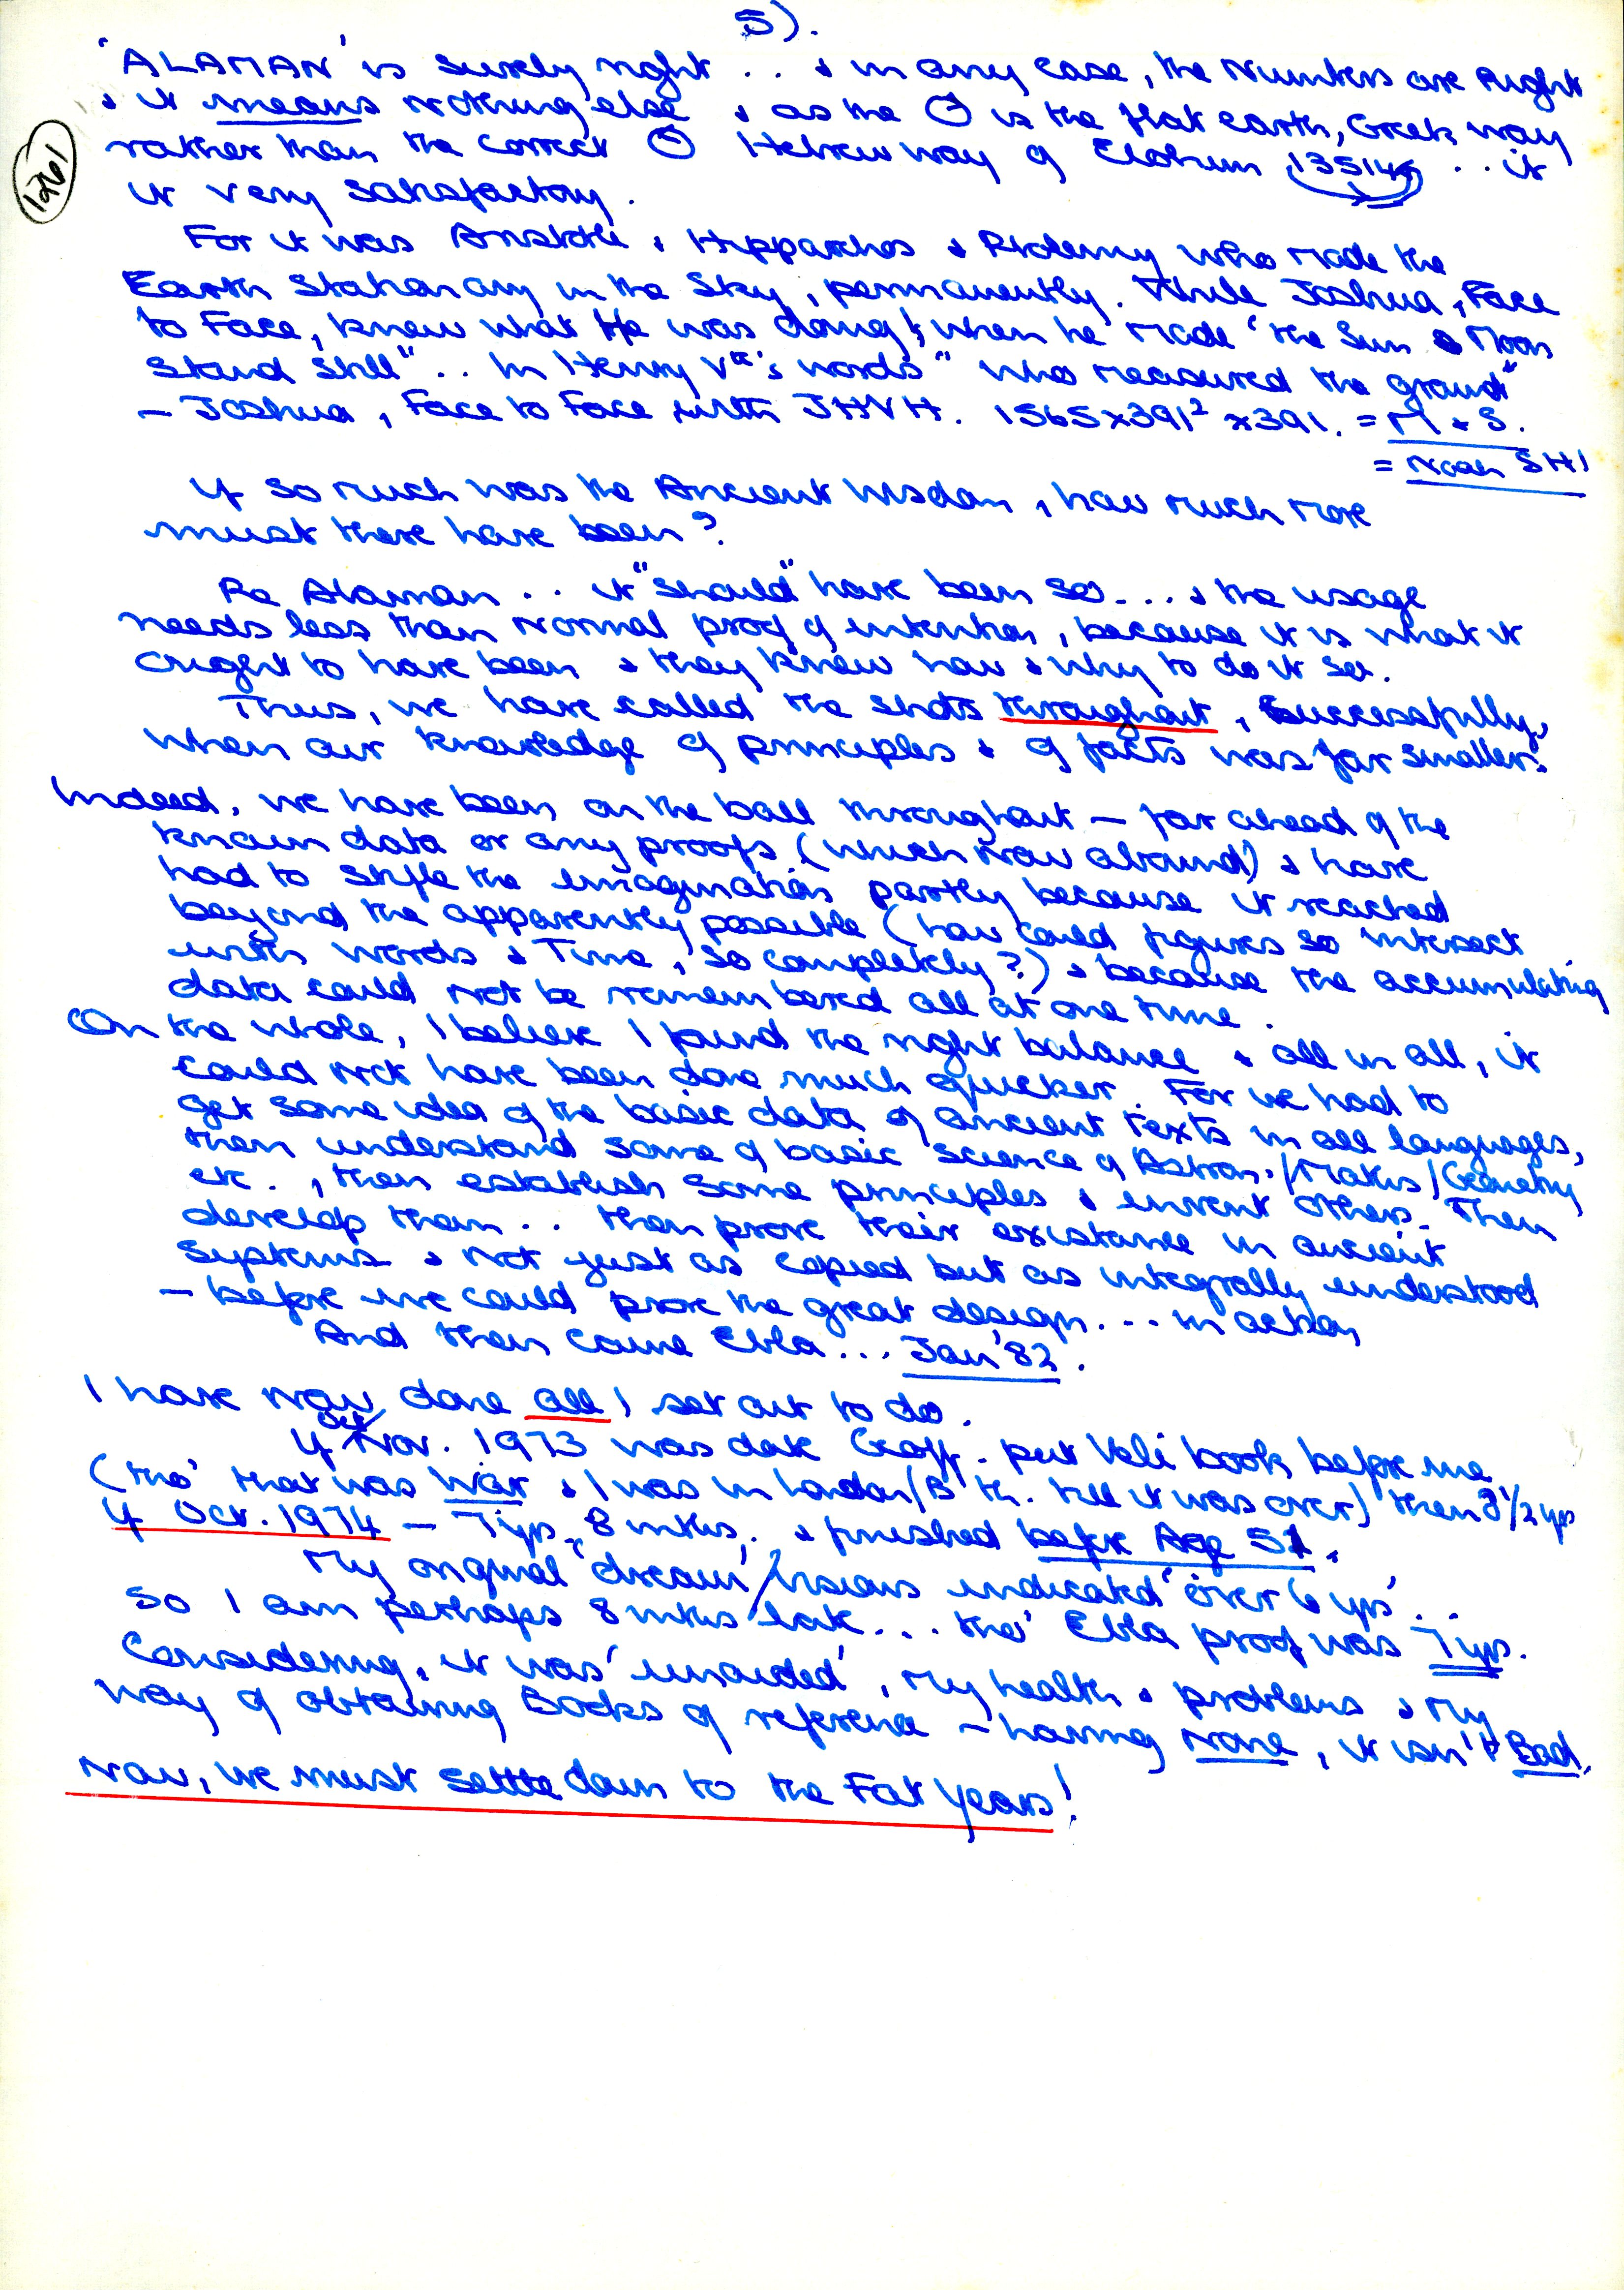 5).
1261
'ALAMAN' is surely right .. & in any case, the Numbers are Right
& it means nothing else & as the O is the flat earth, Greek way
rather than the correct O Hebrew way of Elohim 13514 .. it
is very satisfactory.
For it was Aristotle & Hipparchos & Ptolemy who made the
Earth Stationary in the Sky, permanently. While Joshua, Face
to Face, knew what He was doing! when he made 'the Sun & Moon
Stand Still" .. In Henry Vth's words "who measured the ground"
– Joshua, Face to Face with JHVH. 1565x391² x391. = M & S.
= Noah SH!
If so much was the Ancient Wisdom, how much more
must there have been?
Re Alaman .. it "should" have been so... & the usage
needs less than Normal proof of intention, because it is what it
ought to have been & they knew how & why to do it so.
Thus, we have called the shots throughout, Successfully,
when our knowledge of principles & of facts was far smaller.
Indeed, we have been on the ball throughout – far ahead of the
known data or any proofs (which now abound) & have
had to stifle the imagination partly because it reached
beyond the apparently possible (how could figures so intersect
with words & Time, so completely?) & because the accumulating
data could not be remembered all at one time.
On the whole, I believe I found the right balance & all in all, it
could not have been done much quicker. For we had to
get some idea of the basic data of ancient texts in all languages,
then understand some of basic science of Astron./Maths/Geometry
etc., then establish some principles & invent others. Then
develop them .. then prove their existance in ancient
Systems & not just as copied but as integrally understood
– before we could prove the great design... in action
And then came Ebla... Jan '82.
I have now done all I set out to do.
If Oct/Nov. 1973 was date Geoff. put Veli book before me
(tho' that was War & I was in London/B'th. till it was over) then 8 1/2 yrs
If Oct. 1974 – 7 yrs, 8 mths. & finished before Age 51.
My original 'dream'/visions indicated 'over 6 yrs'..
So I am perhaps 8 mths late... tho' Ebla proof was 7 yrs.
Considering, it was 'unaided', my health & problems & my
way of obtaining Books of reference – having None, it isn't Bad.
Now, we must settle down to the Fat Years!